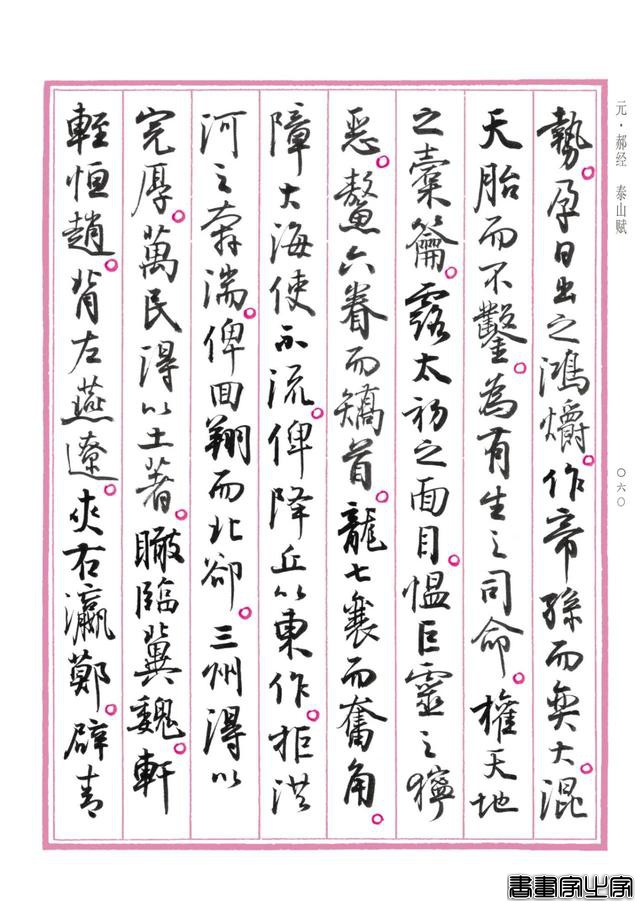 元·郝经 泰山赋
〇六〇
勢。孕日出之鴻爝。作帝孫而奠大。混
天胎而不鑿。為有生之司命。權天地
之橐籥。露太初之面目。愠巨靈之獰
惡。鰲六眷而矯首。龍七襄而奮角。
障大海使不流。俾降丘以東作。拒洪
河之奔湍。俾回翔而北卻。三州得以
完厚。萬民得以土著。瞰臨冀魏。軒
輊恒趙。背左燕遼。夾右瀛鄭。辟青
書畫家之字